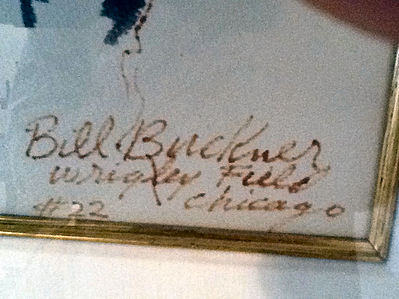 Bill Buckner
Wrigley Field
#22 Chicago